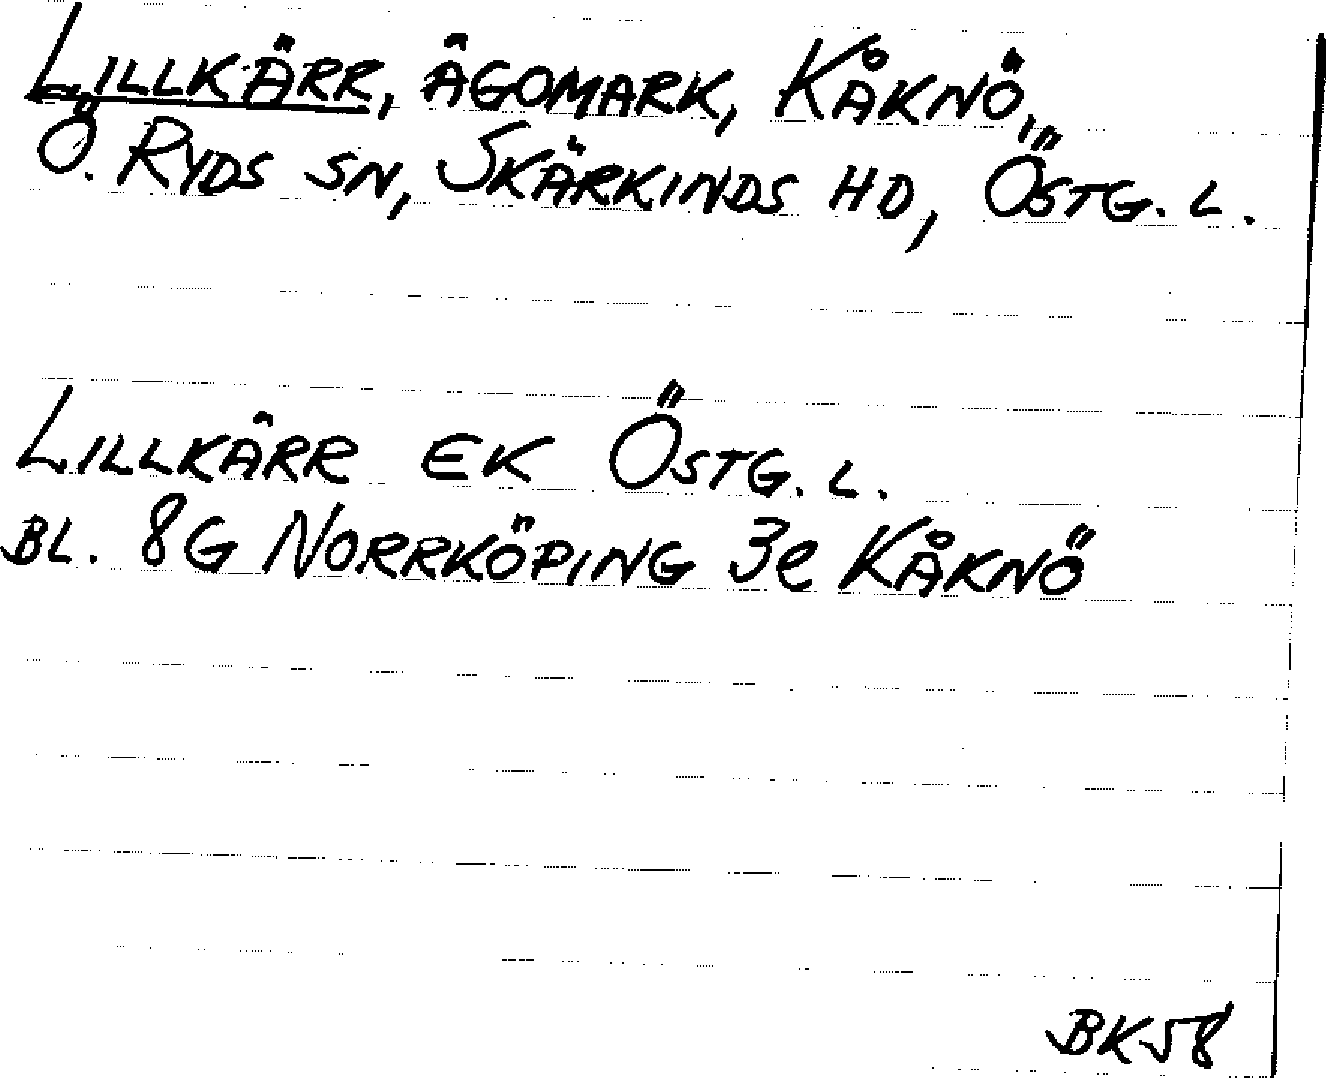 LILLKÄRR, ÄGOMARK, KÅKNÖ,
Ö. RYDS SN, SKÄRKINDS HD, ÖSTG. L.
LILLKÄRR EK ÖSTG. L.
BL. 8G NORRKÖPING 3e KÅKNÖ
BK58